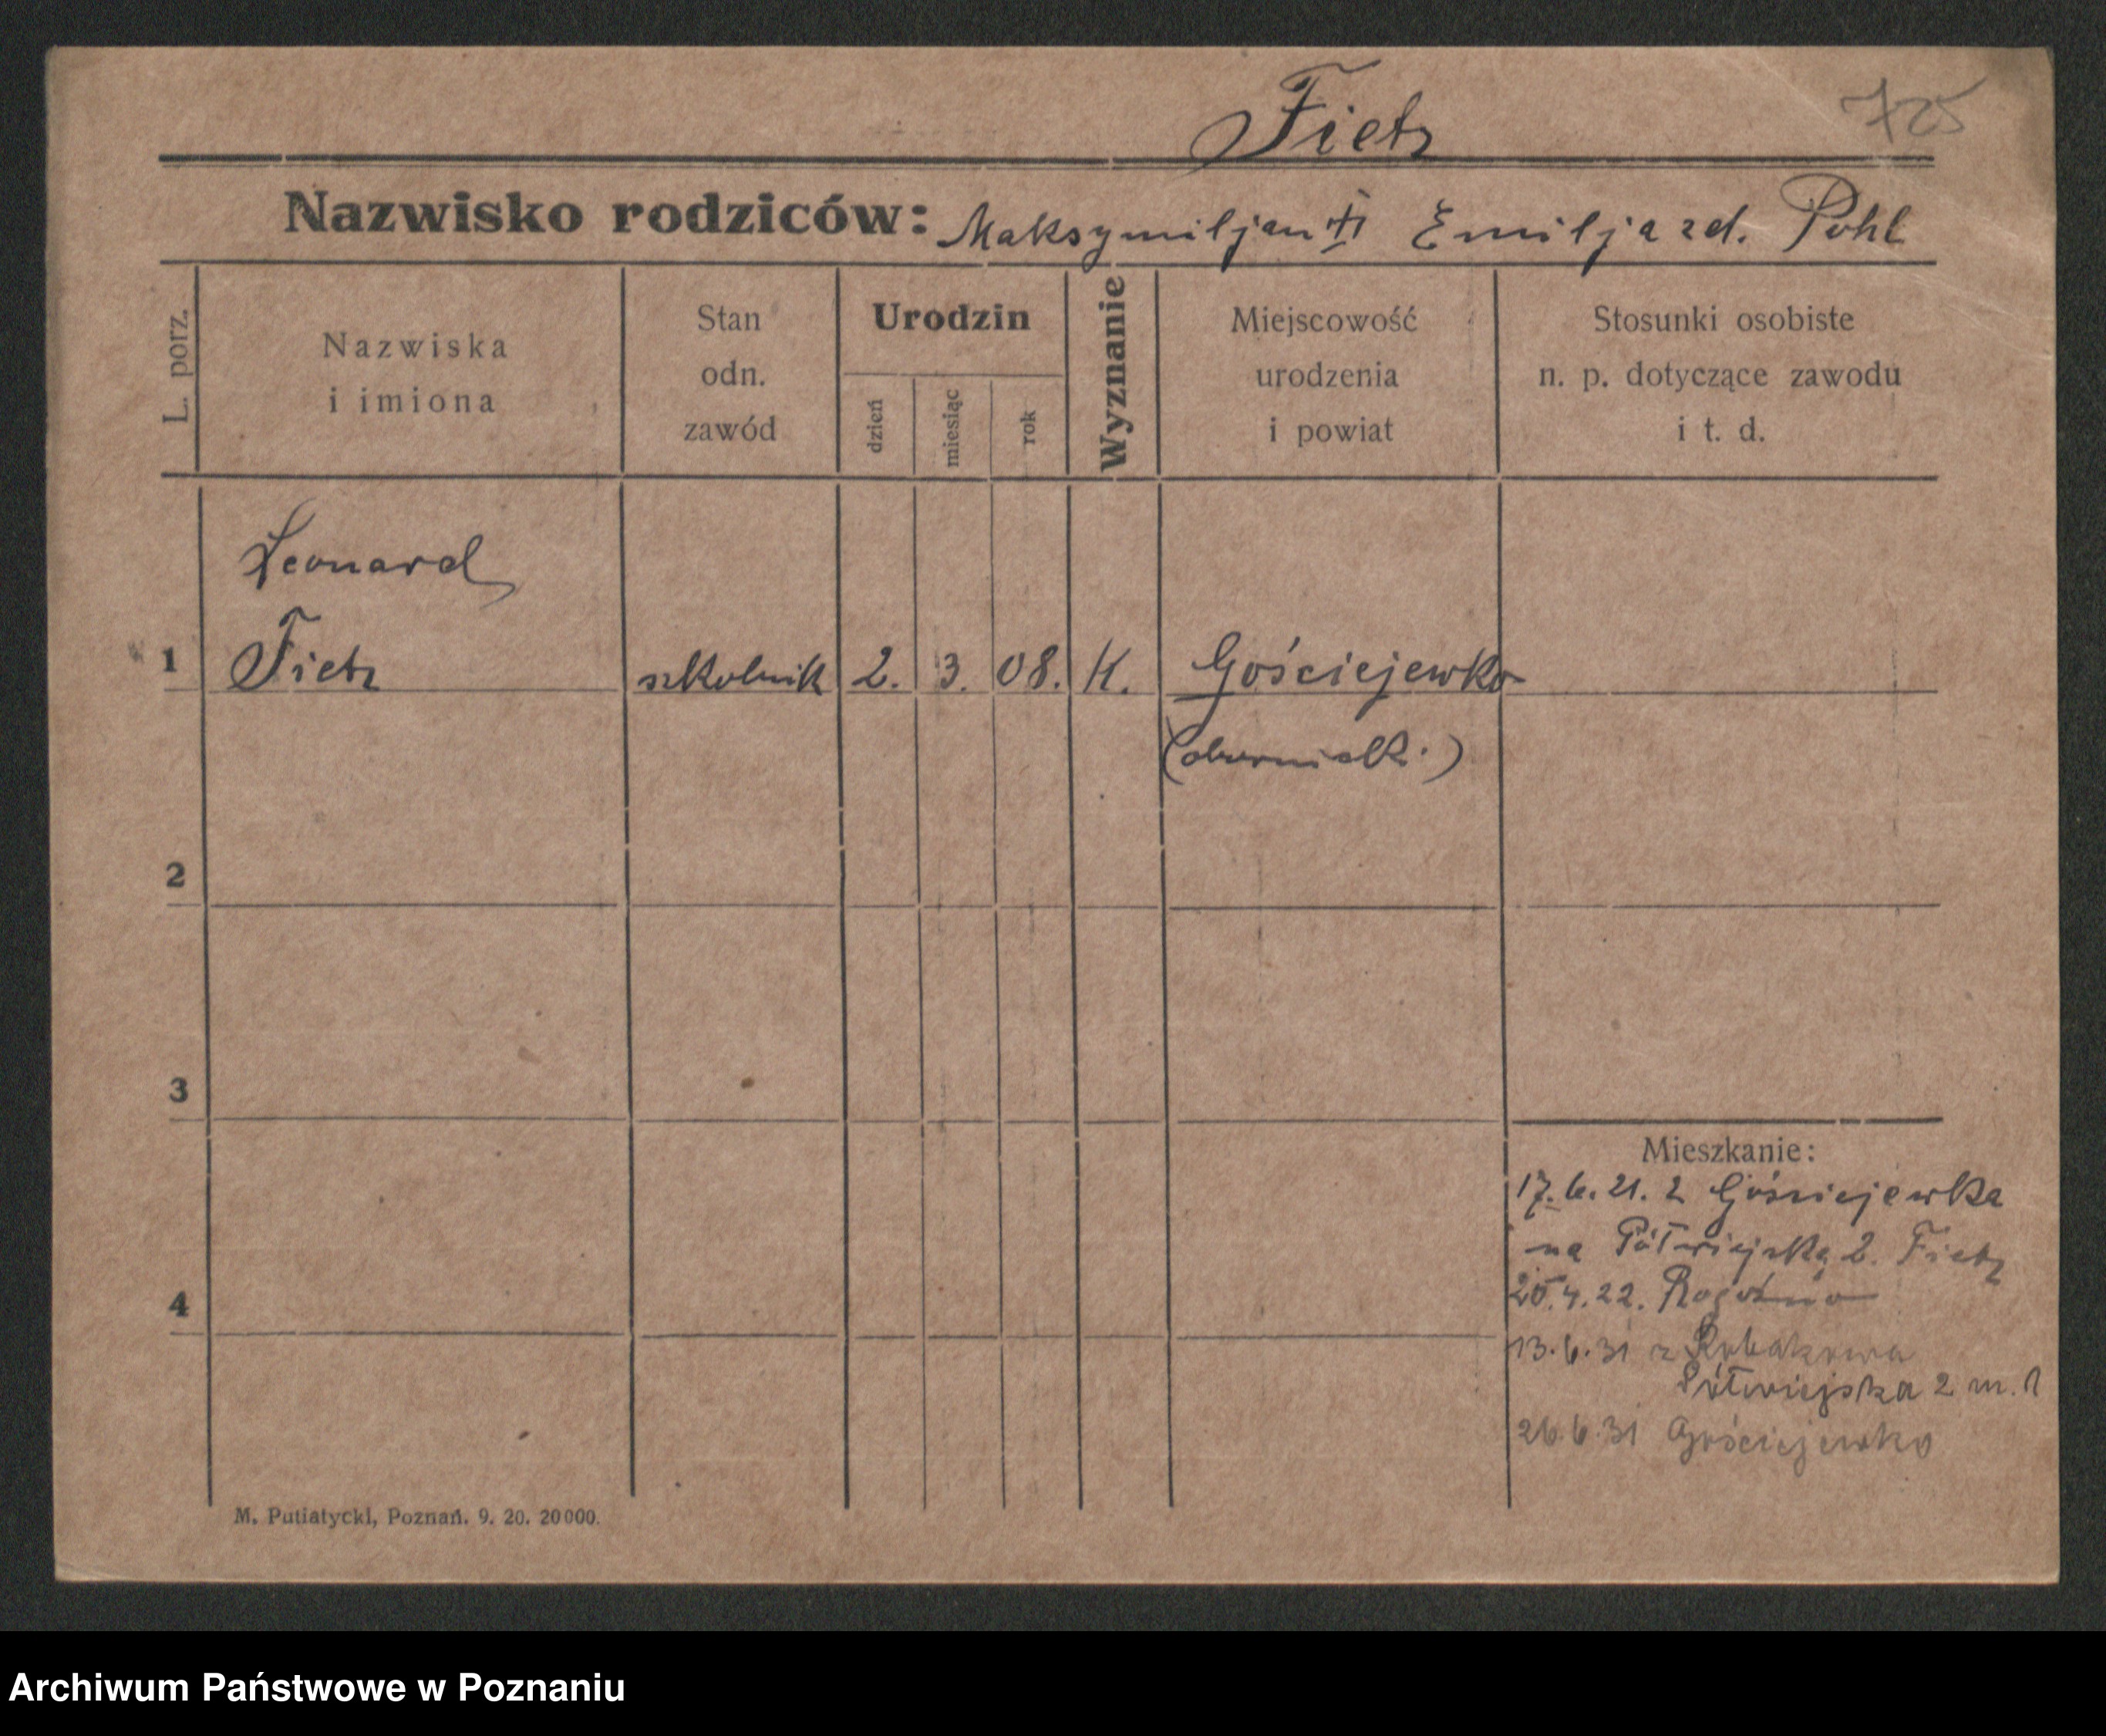 Fietz
725
Nazwisko rodziców: Maksymiljan Emilja zd. Pohl
L. porz.
Nazwiska
i imiona
Stan
odn.
zawód
Urodzin
dzień
miesiąc
rok
Wyznanie
Miejscowość
urodzenia
i powiat
Stosunki osobiste
n. p. dotyczące zawodu
i t. d.
Leonard
1 Fietz szkolnik 2. 3. 08. K. Gościejewko
(obornick.)
2
3
4
Mieszkanie:
17.6.21. z Gościejewka
na Półwiejską 2. Fietz
20.4.22. Rogoźno
13.6.31 z Rubakowa
Półwiejska 2 m. 1
26.6.31 Gościejewko
M. Putiatycki, Poznań. 9. 20. 20000.
Archiwum Państwowe w Poznaniu